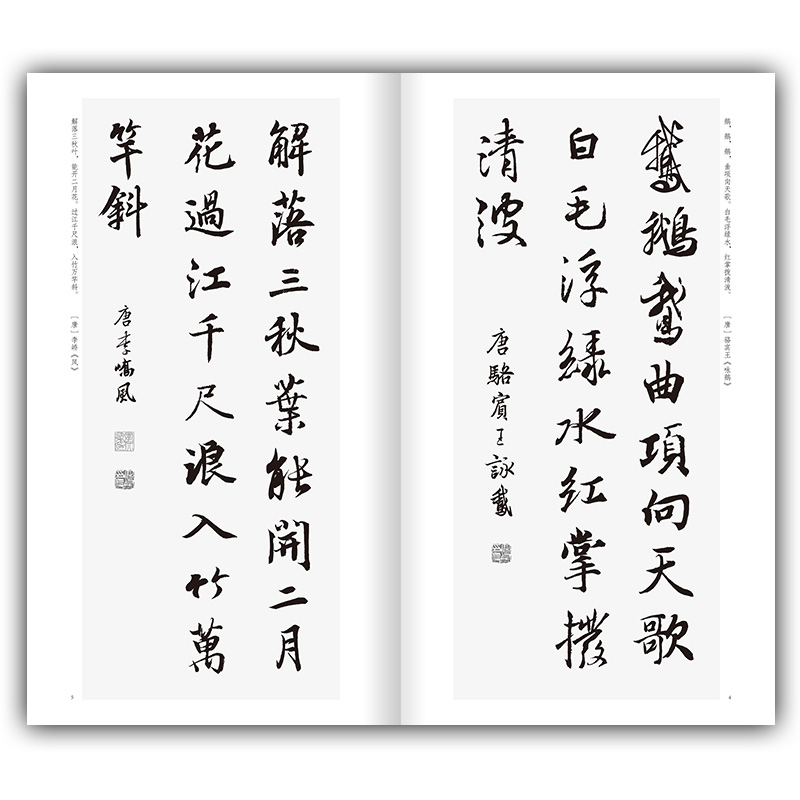 鹅，鹅，鹅，曲项向天歌。白毛浮绿水，红掌拨清波。 [唐]骆宾王《咏鹅》
鵞鵝鵞曲項向天歌
白毛浮緑水紅掌撥
清波
唐駱賓王詠鵞
4
解落三秋葉能開二月
花過江千尺浪入竹萬
竿斜
唐李嶠風
解落三秋叶，能开二月花。过江千尺浪，入竹万竿斜。 [唐]李峤《风》
5